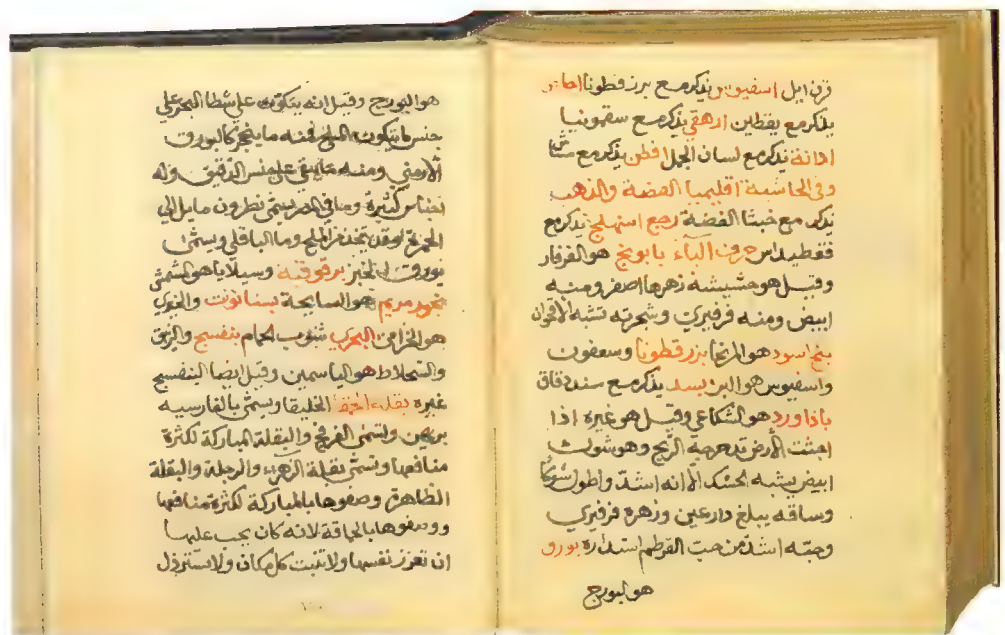 قرن ايل اسفيوس يذكر مع بزر قطونا
يذكر مع يقطين ارهقي يذكر مع سقمونيا
اذانة يذكر مع لسان الحمل افطن يذكر مع
وفي الحاشية اقليميا الفضة والذهب
يذكر مع خبث الفضة رجع اسنهلج يذكر مع
حرف الباء بابونج هو القرفار
وقيل هو حشيشة زهرها اصفر ومنه
ابيض ومنه فرفيري وشجرته تشبه الاقحوان
بنج اسود هو بزر قطونا وسعفون
واسفيوس هو البرز بسد يذكر مع
باذاورد هو الشكاعي وقيل هو غيره اذا
الأرض تدحرجه الريح وهو شوك
ابيض يشبه الحسك الا انه اشد واطول شوكا
وساقه يبلغ ذراعين وزهره فرفيري
وحبه اشد من حب القرطم استداره بورق
هو البورج
هو البورج وقيل انه يتكون على شطا البحر على
جنس ما يتكون الملح فمنه ما ينحجر كالبورق
الأرمني ومنه ما يبقى على جنس الدقيق وله
اجناس كثيرة وما في المصر يسمى نطرون مايل الي
الحمرة وقد يتخذ من الملح وما الباقلي ويسمى
بورق الخبز برقوقية وسيلايا هو المشمش
بخور مريم هو السايحة بستانوت والبري
هو الخزامي البحري شبوب الحمام بنفسج والزبق
والسجلاط هو الياسمين وقيل ايضا البنفسج
غيره بقلة الحمقا الخليقا ويسمى بالفارسيه
بربهين وتسمى الفرفج والبقلة المباركة لكثرة
منافعها وتسمى بقلة الزهراء والرجلة والبقلة
الطاهرة وصفوها بالمباركة لكثرة منافعها
ووصفوها بالحماقة لانه كان يجب عليها
ان تعزز نفسها ولا تنبت كل مكان ولا تسترذل